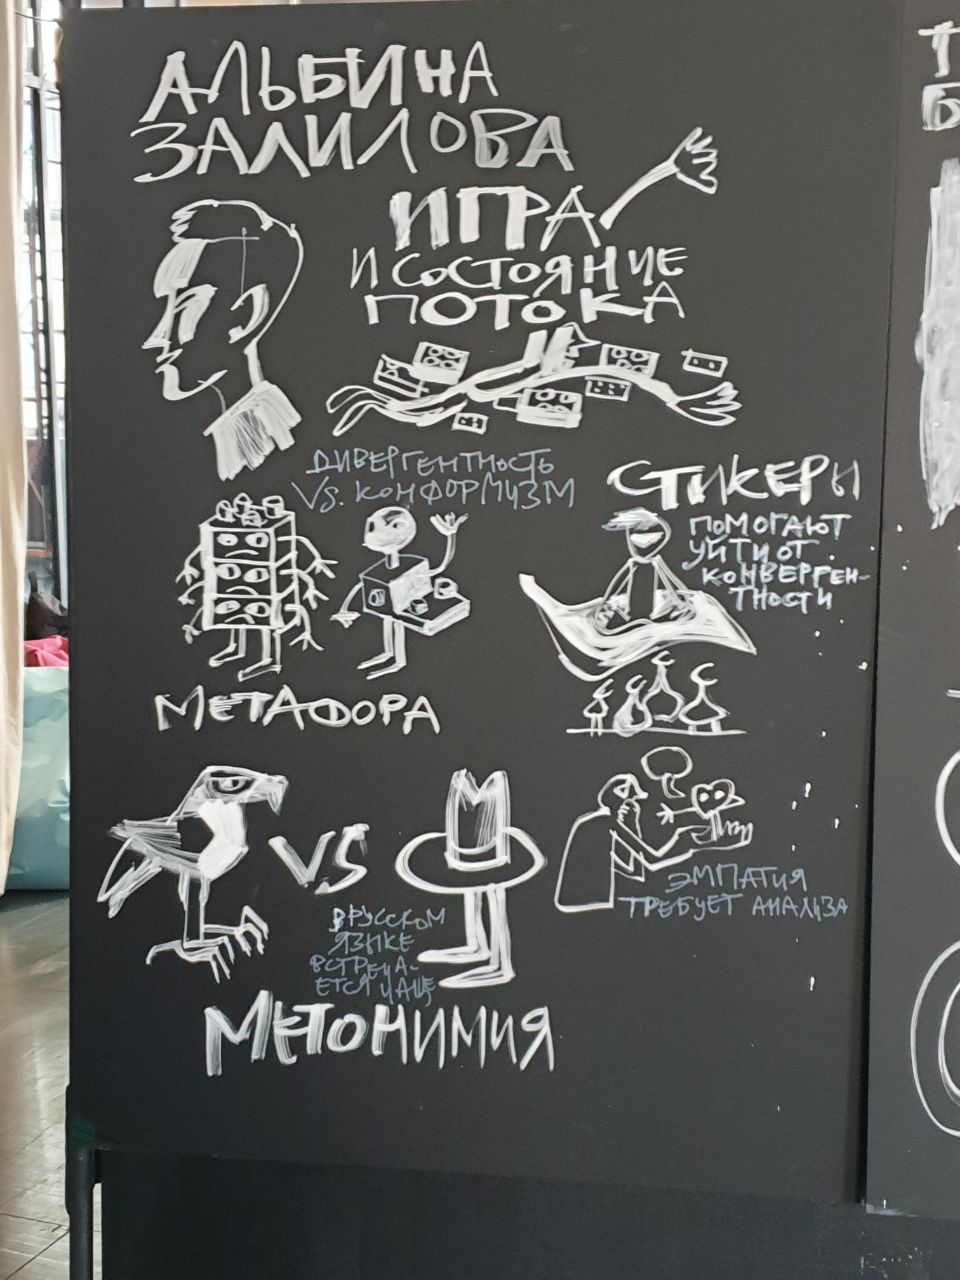 АЛЬБИНА
ЗАЛИЛОВА
ИГРА
И СОСТОЯНИЕ
ПОТОКА
ДИВЕРГЕНТНОСТЬ
VS. КОНФОРМИЗМ
СТИКЕРЫ
ПОМОГАЮТ
УЙТИ ОТ
КОНВЕРГЕН-
ТНОСТИ
МЕТАФОРА
VS
ЭМПАТИЯ
ТРЕБУЕТ АНАЛИЗА
В РУССКОМ
ЯЗЫКЕ
ВСТРЕЧА-
ЕТСЯ ЧАЩЕ
МЕТОНИМИЯ